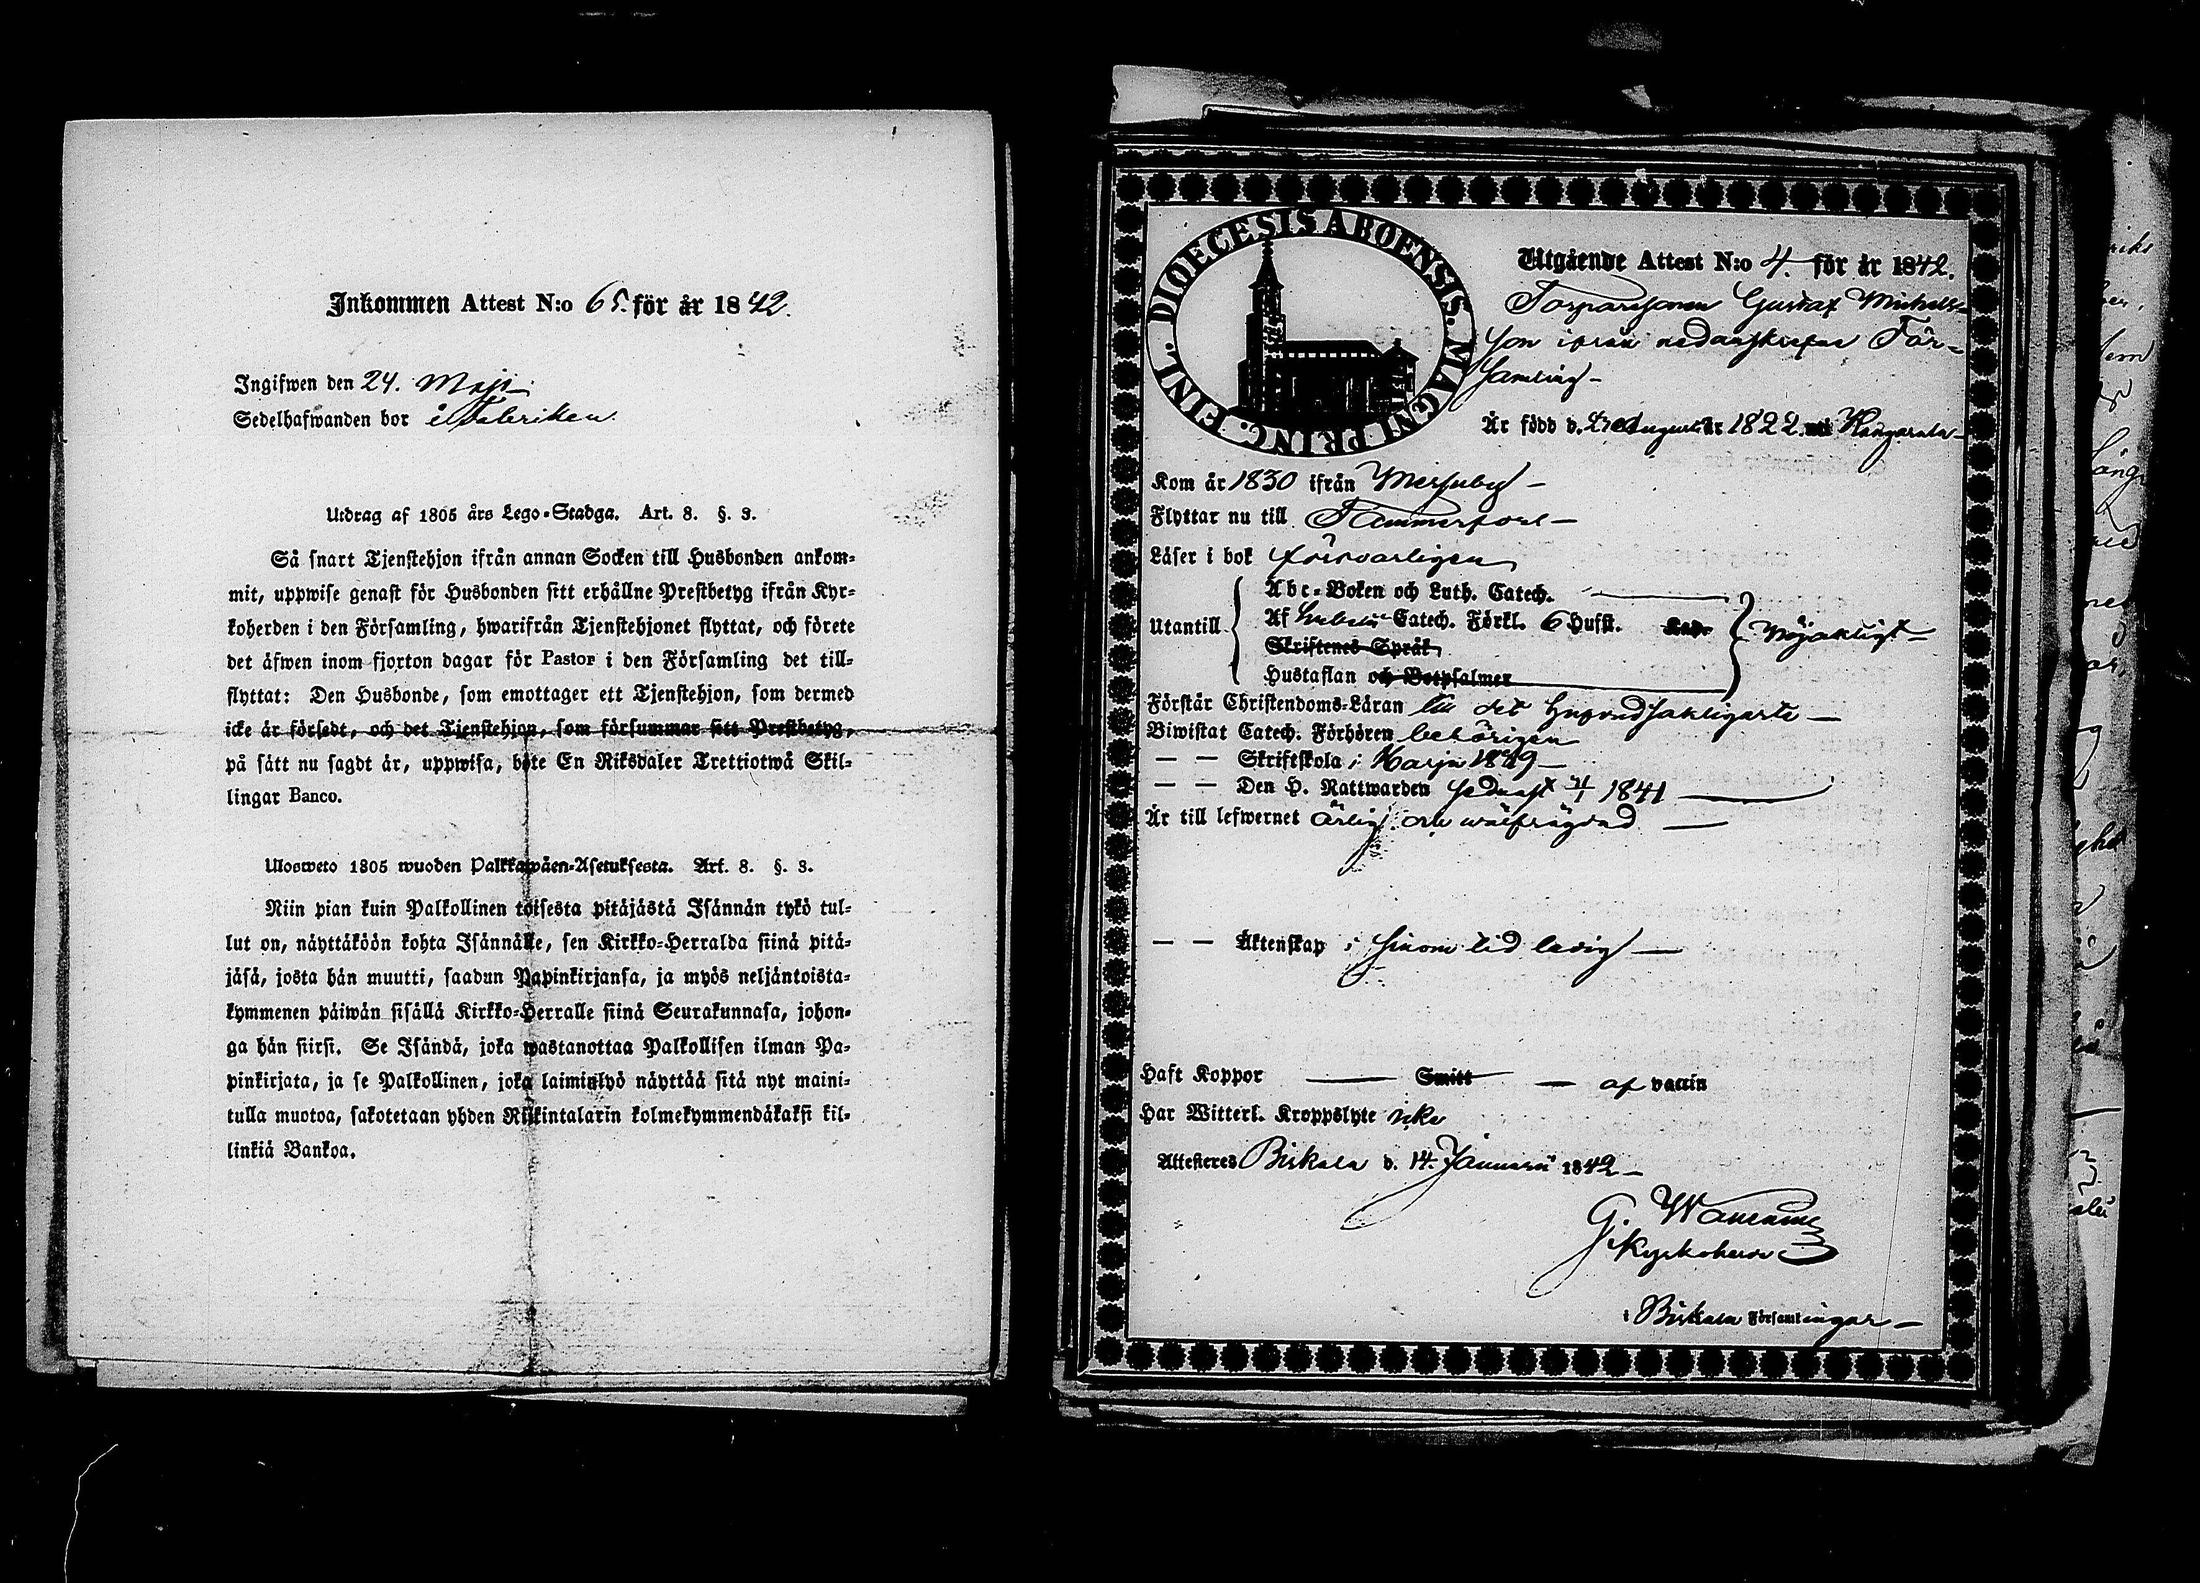 Inkommen Attest N:o 65. för år 1842.
Ingifwen den 24. Maji
Sedelhafwanden bor å Fabriken.
Utdrag af 1805 års Lego-Stadga. Art. 8. §. 3.
Så snart Tjenstehjon ifrån annan Socken till Husbonden ankom-
mit, uppwise genast för Husbonden sitt erhållne Prestbetyg ifrån Kyr-
koherden i den Församling, hwarifrån Tjenstehjonet flyttat, och förete
det äfwen inom fjorton dagar för Pastor i den Församling det till-
flyttat: Den Husbonde, som emottager ett Tjenstehjon, som dermed
icke är försedt, och det Tjenstehjon, som försummar sitt Prestbetyg,
på sätt nu sagdt är, uppwisa, böte En Riksdaler Trettiotwå Skil-
lingar Banco.
Ulosweto 1805 wuoden Palkkawäen-Asetuksesta. Art. 8. §. 3.
Niin pian kuin Palkollinen toisesta pitäjästä Isännän tykö tul-
lut on, näyttäköön kohta Isännälle, sen Kirkko-Herralda siinä pitä-
jäsä, josta hän muutti, saadun Papinkirjansa, ja myös neljäntoista-
kymmenen päiwän sisällä Kirkko-Herralle siinä Seurakunnasa, johon-
ga hän siirsi. Se Isändä, joka wastanottaa Palkollisen ilman Pa-
pinkirjata, ja se Palkollinen, joka laiminlyö näyttää sitä nyt maini-
tulla muotoa, sakotetaan yhden Riikintalarin kolmekymmendäkaksi kil-
linkiä Bankoa.
DIOECESIS ABOENSIS. MAGNI PRINC. FINL.
Utgående Attest N:o 4. för år 1842.
Torparesonen Gustaf Michels-
son ifrån nedanskrefne För-
samling
Är född d. Augusti år 1822. uti Kangasala
Kom år 1830 ifrån Messuby
Flyttar nu till Tammerfors
Läser i bok försvarligen
Utantill
Abc-Boken och Luth. Catech.
Af Catech. Förkl. 6 Hufst. Möjeligt
Skriftenes Språk
Hustaflan och Botpsalmer
Förstår Christendoms-Läran till det hufvudsakligaste
Biwistat Catech. Förhören behörigen
— — Skriftskola i Harju 1839
— — Den H. Nattwarden sednast 1841
Är till lefwernet ärlig och wälfrägdad
— — Äktenskap i sinom tid ledig
Haft Koppor Smitt af vaccin
Har Witterl. Kroppslyte icke
Attesteres Birkala d. 14. Januarii 1842
G. Wanenne
Kyrkoherde
i Birkala Församlingar